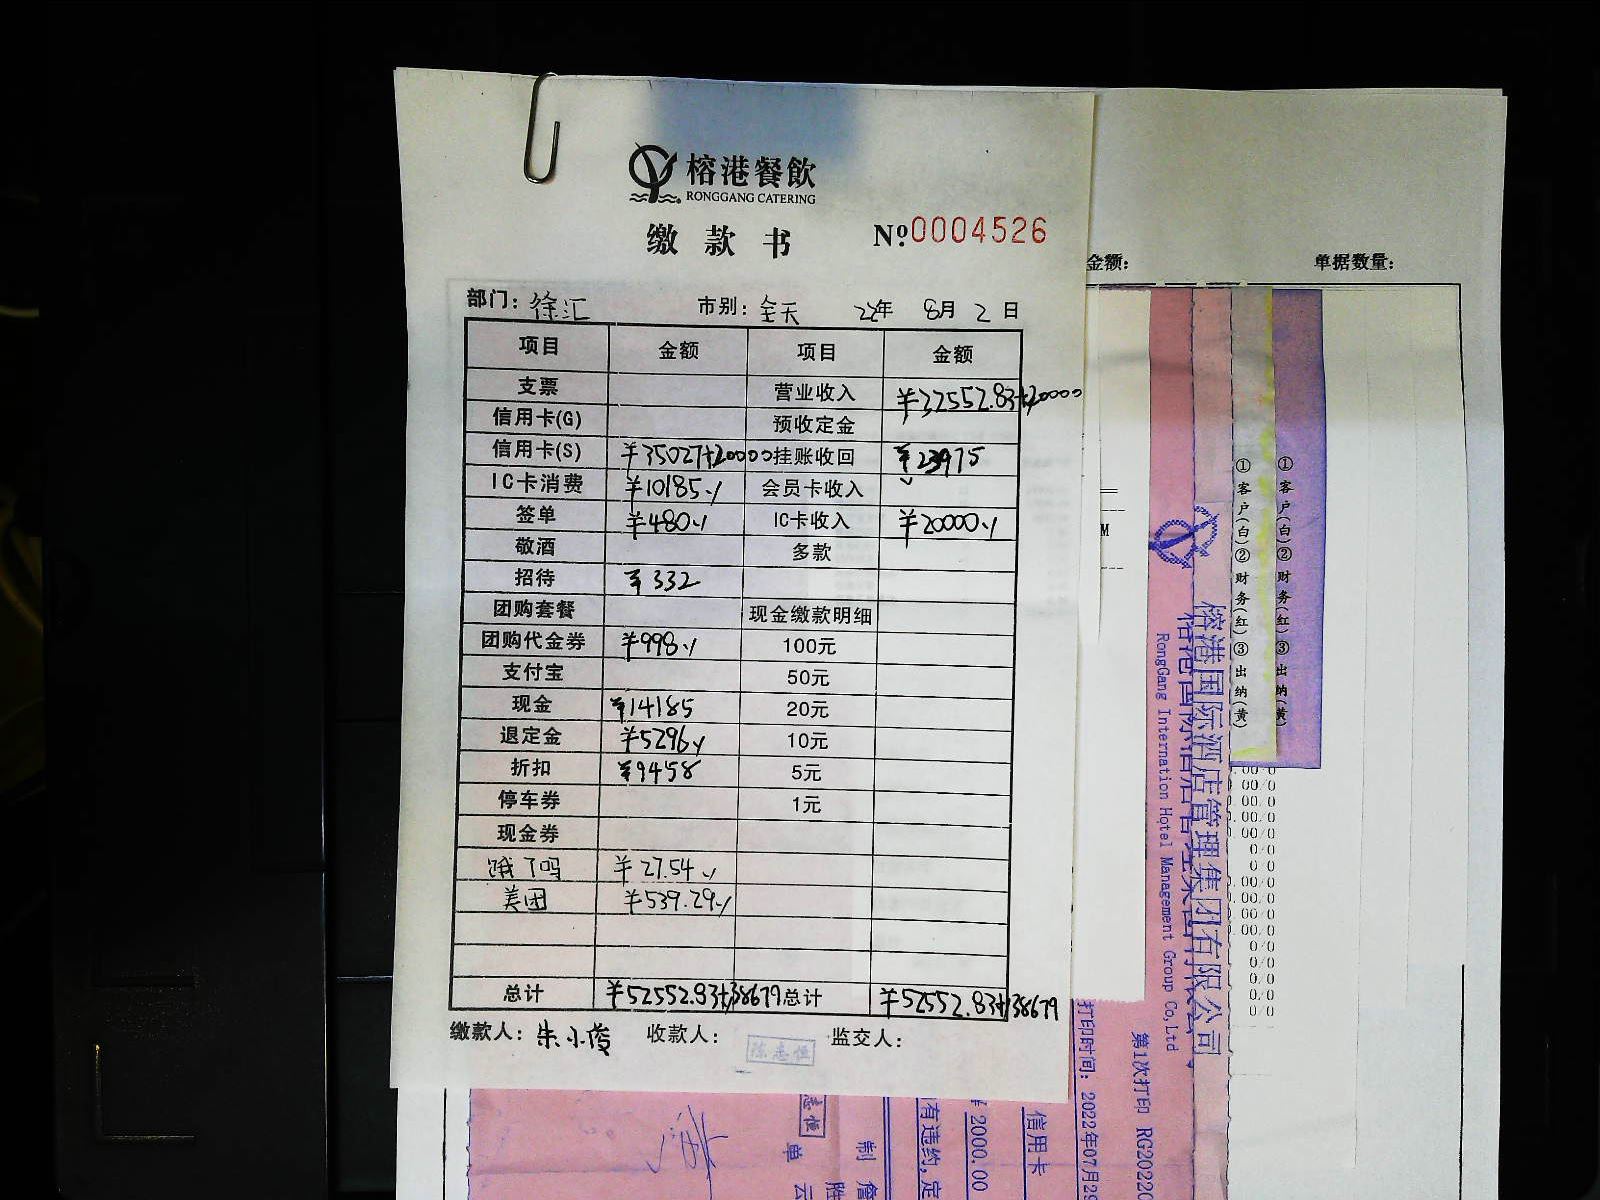 榕港餐飲
RONGGANG CATERING
缴款书 №0004526
部门: 徐汇 市别: 全天 22年 8月 2日
项目 金额 项目 金额
支票 营业收入 ¥32552.83+20000
信用卡(G) 预收定金
信用卡(S) ¥35027+20000 挂账收回 ¥23975
IC卡消费 ¥10185.- 会员卡收入
签单 ¥480.- IC卡收入 ¥20000.-
敬酒 多款
招待 ¥332
团购套餐 现金缴款明细
团购代金券 ¥998.- 100元
支付宝 50元
现金 ¥14185 20元
退定金 ¥5296.- 10元
折扣 ¥9458 5元
停车券 1元
现金券
饿了吗 ¥27.54.-
美团 ¥539.29.-
总计 ¥52552.83+38679 总计 ¥52552.83+38679
缴款人: 朱小俊 收款人: 陈志恒 监交人:
金额: 单据数量:
①客户(白)②财务(红)③出纳(黄)
①客户(白)②财务(红)③出纳(黄)
榕港国际酒店管理集团有限公司
RongGang International Hotel Management Group Co,Ltd
第1次打印 RG20220
打印时间: 2022年07月29
信用卡
¥ 2000.00
有违约,定
制
单
志恒